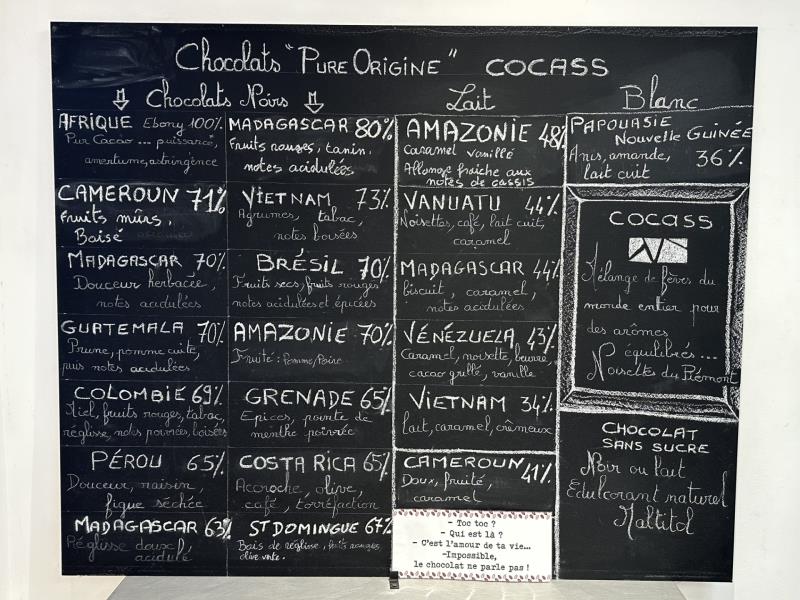 Chocolats "Pure Origine" COCASS
Chocolats Noirs
AFRIQUE Ebony 100%
Pur Cacao ... puissance,
amertume, astringence
CAMEROUN 71%
Fruits mûrs,
Boisé
MADAGASCAR 70%
Douceur herbacée,
notes acidulées
GUATEMALA 70%
Prune, pomme cuite,
puis notes acidulées
COLOMBIE 69%
Miel, fruits rouges, tabac,
réglisse, notes poivrées, boisées
PÉROU 65%
Douceur, raisin,
figue séchée
MADAGASCAR 63%
Réglisse doux,
acidulé
MADAGASCAR 80%
Fruits rouges, tanin,
notes acidulées
VIETNAM 73%
Agrumes, tabac,
notes boisées
BRÉSIL 70%
Fruits secs, fruits rouges
notes acidulées et épicées
AMAZONIE 70%
Fruité : Pomme/Poire
GRENADE 65%
Epices, pointe de
menthe poivrée
COSTA RICA 65%
Accroche, olive,
café, torréfaction
ST DOMINGUE 67%
Bois de réglisse, fruits rouges,
olive verte.
Lait
AMAZONIE 48%
Caramel vanillé
Allonge fraîche aux
notes de cassis
VANUATU 44%
Noisettes, café, lait cuit,
caramel
MADAGASCAR 44%
biscuit, caramel,
notes acidulées
VÉNÉZUELA 43%
Caramel, noisette, beurre,
cacao grillé, vanille
VIETNAM 34%
lait, caramel, crémeux
CAMEROUN 41%
Doux, fruité,
caramel
- Toc toc ?
- Qui est là ?
- C'est l'amour de ta vie...
-Impossible,
le chocolat ne parle pas !
Blanc
PAPOUASIE
Nouvelle GUINÉE
Anis, amande, 36%
lait cuit
COCASS
Mélange de fèves du
monde entier pour
des arômes
équilibrés ...
Noisettes du Piémont
CHOCOLAT
SANS SUCRE
Noir ou lait
Edulcorant naturel
Maltitol